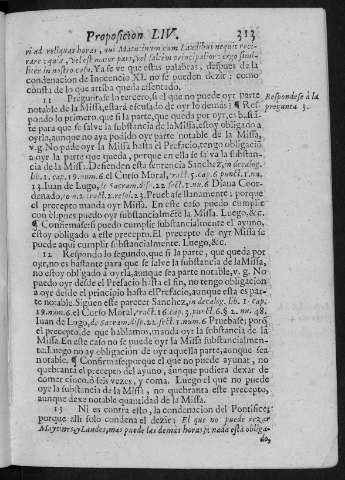 Proposicion LIV. 313
vi ad reliquas horas, qui Matutinum cum Laudibus nequit reci-
tare: quia, vel est maior pars, vel saltem principalior: ergo simi-
liter in nostro casu. Ya se ve que estas palabras, despues de la
condenacion de Inocencio XI. no se pueden dezir; como
consta de lo que arriba queda assentado.
11 Preguntase lo tercero, si el que no puede oyr parte
notable de la Missa, estarà escusado de oyr lo demàs? ¶ Res-
pondo lo primero, que si la parte, que queda por oyr, es bastã-
te para que se salve la substancia de la Missa, estoy obligado a
oyrla, aunque no aya podido oyr parte notable de la Missa,
v.g. No pude oyr Missa hasta el Prefacio, tengo obligacio
a oyr la parte que queda, porque en esta se salva la substan-
cia de la Missa. Defienden esta sentencia Sanchez, in decalog.
lib. 1. cap. 19. num. 6 el Curso Moral, tract. 5. cap. 6 punct. 1. nu.
13. Juan de Lugo, de Sacram. disp. 22 sect. 1. nu. 6 Diana Coor-
denado, to. m 2. tract. 2. resol. 23. Pruebase llanamente; porque
el precepto manda oyr Missa. En este caso puedo cumplir
con el, pues puedo oyr substancialmẽte la Missa. Luego, &c.
¶ Confirmase: si puedo cumplir substancialmente el ayuno,
estoy obligado a este precepto. El precepto de oyr Missa se
puede aqui cumplir substancialmente. Luego, &c.
12 Respondo lo segundo, que si la parte, que queda por
oyr, no es bastante para que se salve la substancia de la Missa,
no estoy obligado à oyrla, aunque sea parte notable, v. g. No
puedo oyr desde el Prefacio hasta el fin, no tengo obligacion
à oyr desde el principio hasta el Prefacio, aunque esta es par-
te notable. Siguen este parecer Sanchez, in decalog. lib. 1. cap.
19. num. 6. el Curso Moral, tract. 16. cap. 3. punct. 6. § 2. nu. 48.
Juan de Lugo, de Sacram. disp. 22. sect. 1. num. 6 Pruebase; porq̃
el precepto, de que hablamos, manda oyr la substancia de la
Missa. En este caso no se puede oyr la Missa substancialmen-
te. Luego no ay obligacion de oyr aquella parte, aunque sea
notable. ¶ Confirmase: porque el que no puede ayunar, no
quebranta el precepto del ayuno, aunque pudiera dexar de
comer cinco, ò seis vezes, y coma. Luego el que no puede
oyr la substancia de la Missa, no quebranta este precepto,
aunque dexe notable quantidad de la Missa.
13 Ni es contra esto, la condenacion del Pontifice;
porque alli solo condena el dezir: El que no puede rezar
Maytines, y Laudes, mas puede las demàs horas, à nada està obliga-
do,
Respondese à la
pregunta 3.